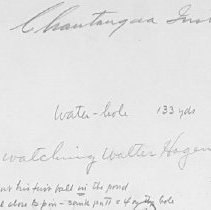 Chautauqua Inst
Water-hole 133 yds
watching Walter Hagen
his first ball in the pond
close to pin - sank putt = 4 on hole